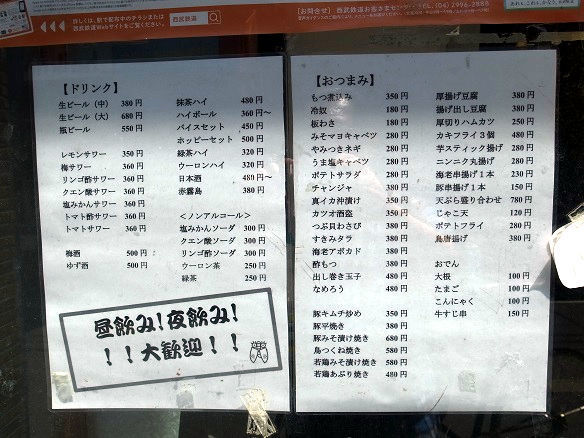 詳しくは、駅で配布中のチラシまたは
西武鉄道Webサイトをご覧ください。
西武鉄道
【お問合せ】西武鉄道お客さまセンター TEL.(04)2996-2888
【ドリンク】
生ビール(中) 380円
生ビール(大) 680円
瓶ビール 550円
レモンサワー 350円
梅サワー 360円
リンゴ酢サワー 360円
クエン酸サワー 360円
塩みかんサワー 360円
トマト酢サワー 360円
トマトサワー 360円
梅酒 500円
ゆず酒 500円
抹茶ハイ 480円
ハイボール 360円〜
バイスセット 450円
ホッピーセット 500円
緑茶ハイ 320円
ウーロンハイ 320円
日本酒 480円〜
赤霧島 380円
<ノンアルコール>
塩みかんソーダ 300円
クエン酸ソーダ 300円
リンゴ酢ソーダ 300円
ウーロン茶 250円
緑茶 250円
昼飲み!夜飲み!
!!大歓迎!!
【おつまみ】
もつ煮込み 350円
冷奴 180円
板わさ 180円
みそマヨキャベツ 280円
やみつきネギ 280円
うま塩キャベツ 280円
ポテトサラダ 280円
チャンジャ 380円
真イカ沖漬け 350円
カツオ酒盗 350円
つぶ貝わさび 350円
すきみタラ 380円
海老アボカド 380円
酢もつ 380円
出し巻き玉子 480円
なめろう 480円
豚キムチ炒め 350円
豚平焼き 380円
豚みそ漬け焼き 680円
鳥つくね焼き 580円
若鶏みそ漬け焼き 580円
若鶏あぶり焼き 480円
厚揚げ豆腐 380円
揚げ出し豆腐 380円
厚切りハムカツ 250円
カキフライ3個 480円
芋スティック揚げ 280円
ニンニク丸揚げ 280円
海老串揚げ1本 230円
豚串揚げ1本 150円
天ぷら盛り合わせ 780円
じゃこ天 120円
ポテトフライ 280円
鳥唐揚げ 380円
おでん
大根 100円
たまご 100円
こんにゃく 100円
牛すじ串 150円